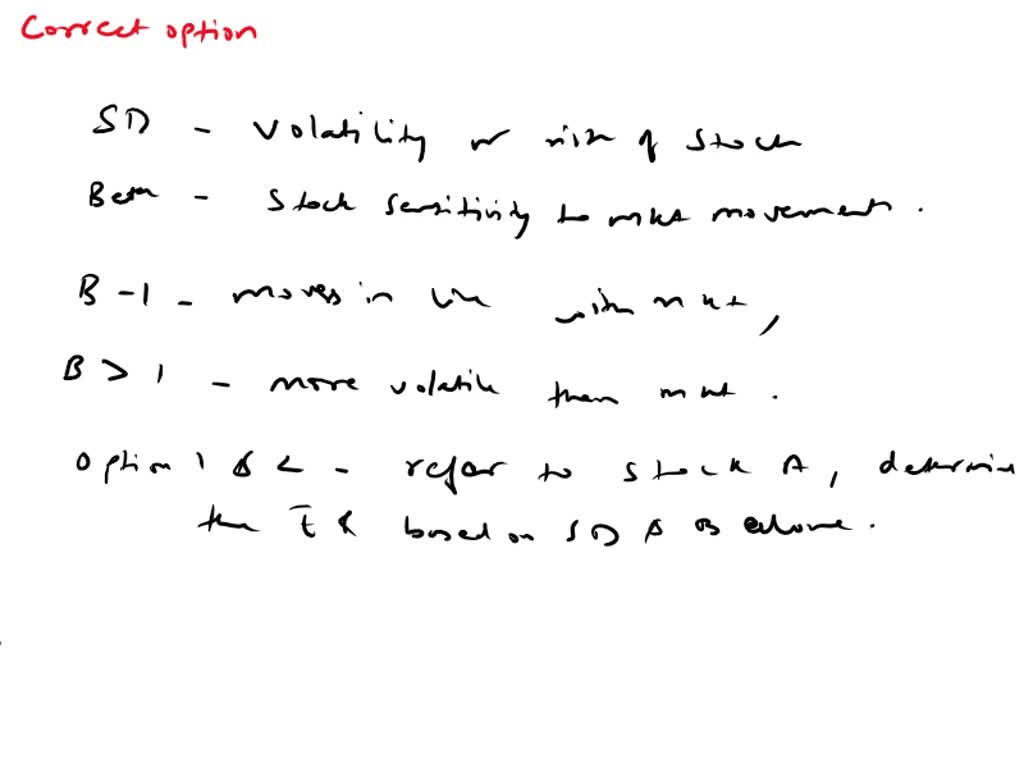 Correct option
SD - Volatility or risk of stock
Beta - Stock sensitivity to mkt movement.
B - 1 - moves in line with mkt,
B > 1 - more volatile than mkt.
Option 1 & 2 - refer to stock A, determine
the ER based on SD & B alone.